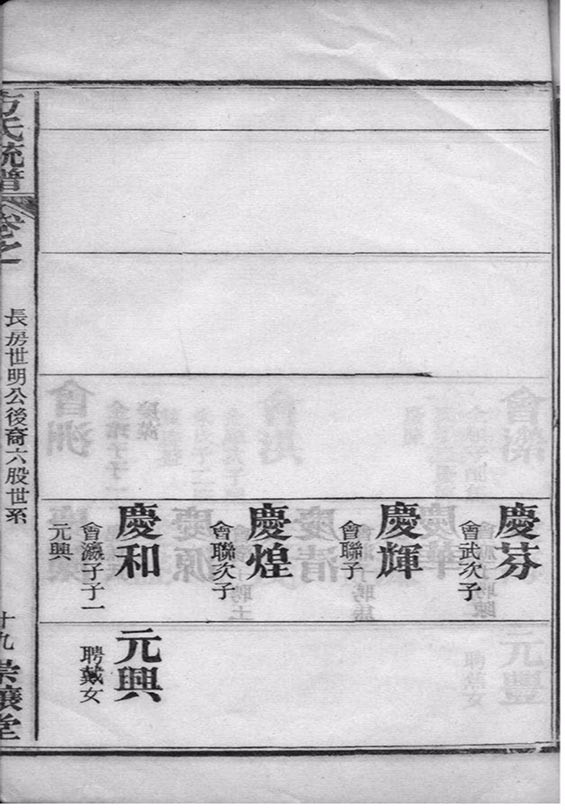 慶芬
會武次子
慶輝
會聯子
慶煌
會聯次子
慶和
會瀛子子一
元興
元興
聘戴女
方氏統譜
卷之一
長房世明公後裔六股世系
十九
堂